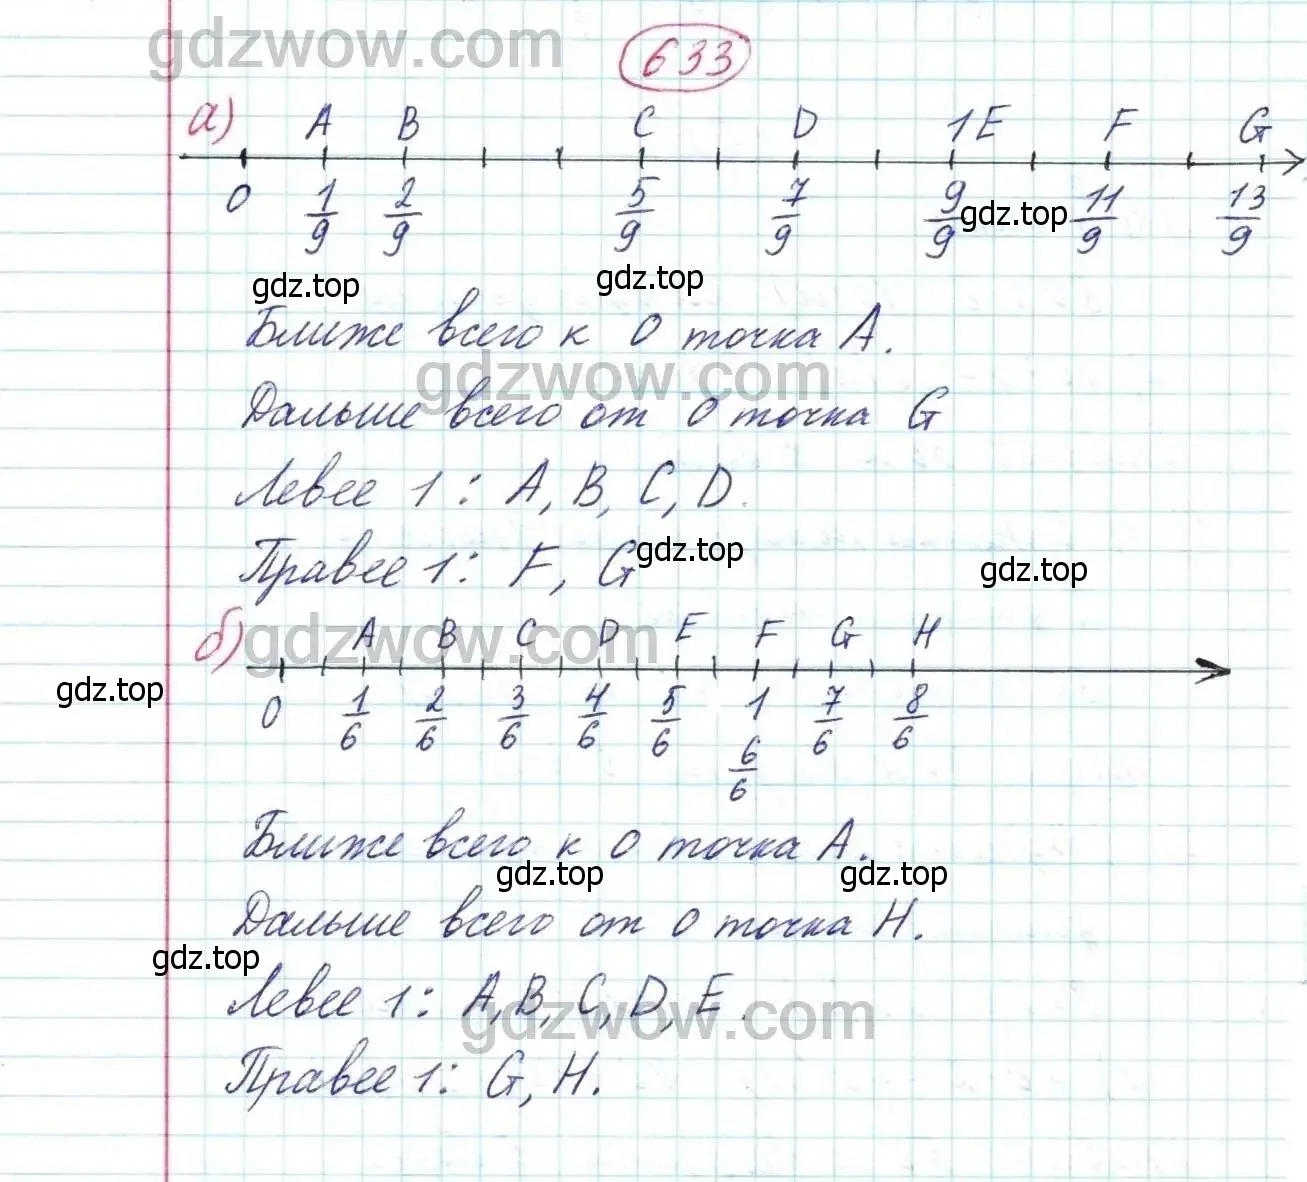 gdzwow.com
633
а) A B C D 1 E F G
0 1/9 2/9 5/9 7/9 9/9 gdz.top 11/9 13/9
gdz.top gdz.top
Ближе всего к 0 точка A.
gdzwow.com
Дальше всего от 0 точка G
Левее 1: A, B, C, D.
Правее 1: F, G
gdz.top gdz.top
б) gdzwow.com
A B C D E F G H
gdz.top
0 1/6 2/6 3/6 4/6 5/6 1 7/6 8/6
6/6
Ближе всего к 0 точка A.
gdz.top gdz.top
Дальше всего от 0 точка H.
gdz.top
Левее 1: A, B, C, D, E.
gdzwow.com
Правее 1: G, H.